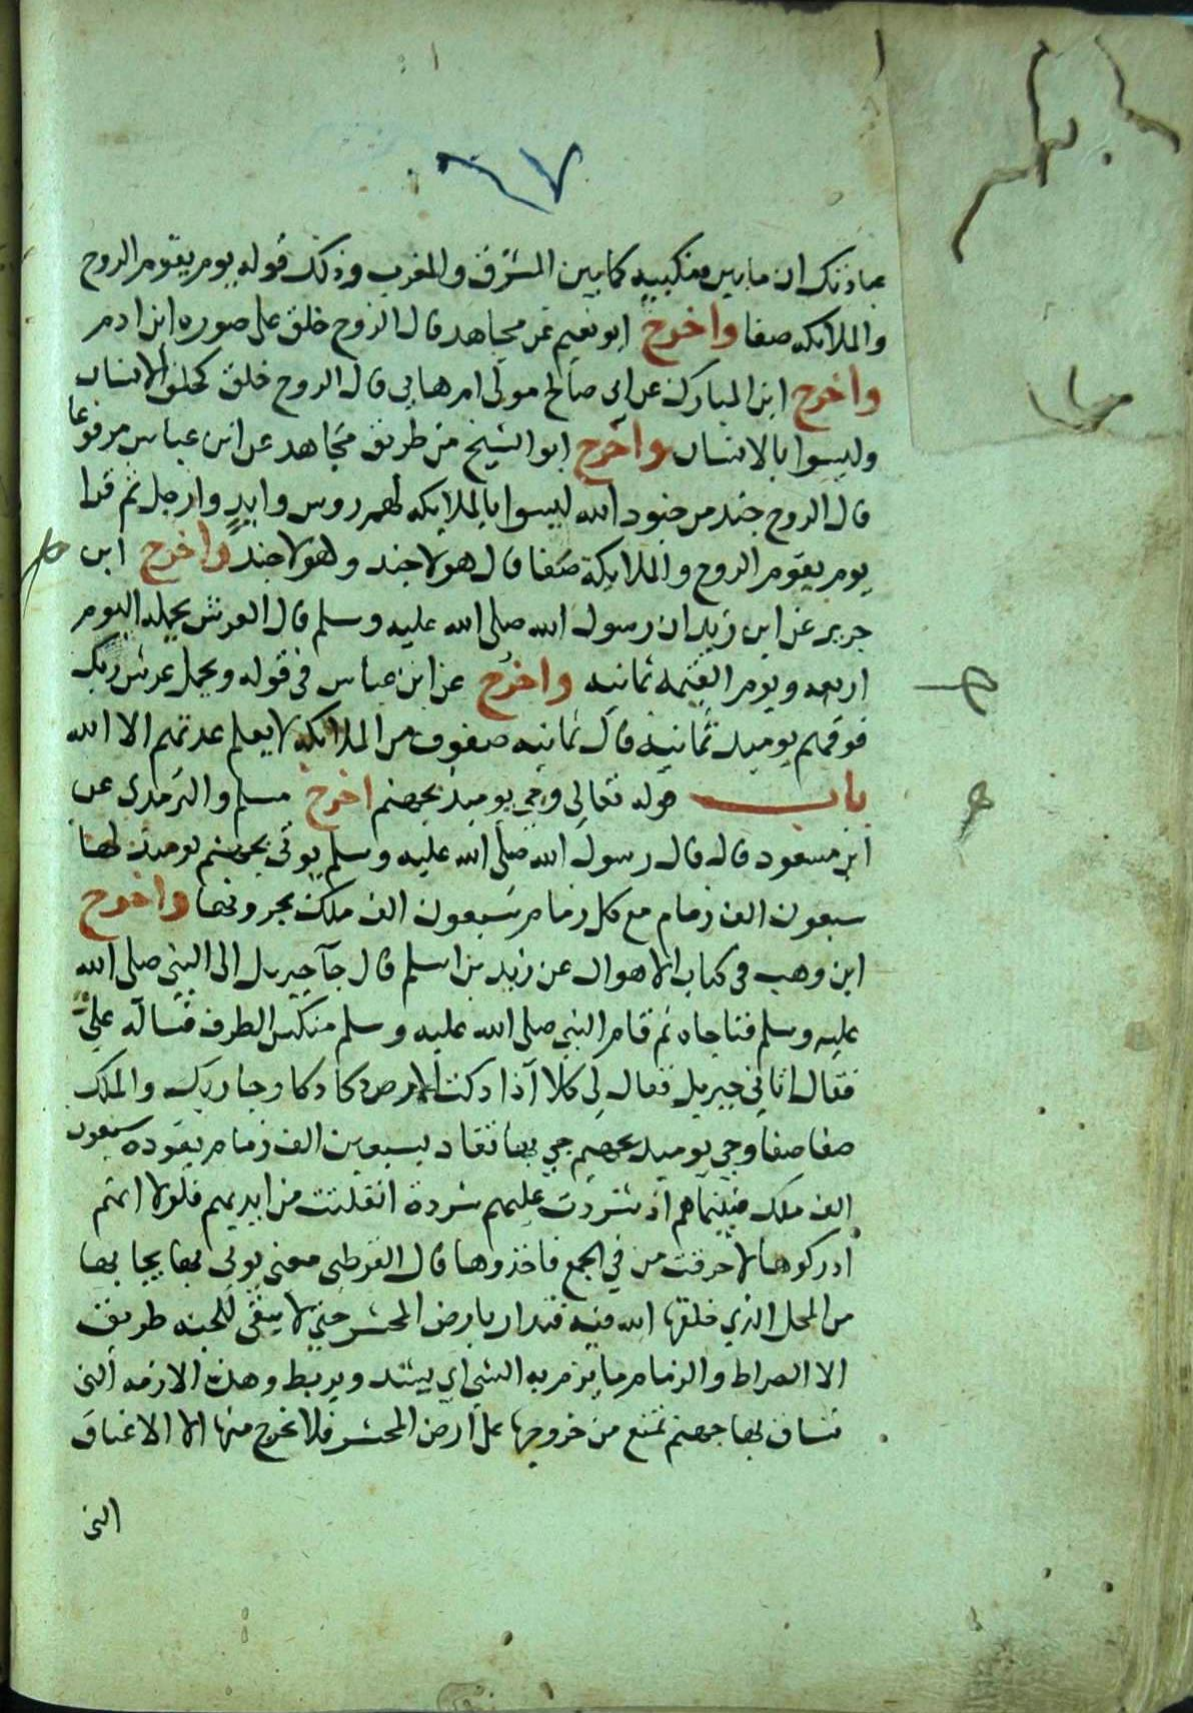 عبادتك ان ما بين منكبيه كما بين المشرق والمغرب وذلك قوله يوم يقوم الروح
والملايكه صفا واخرج ابو نعيم عن مجاهد قال الروح خلق على صوره ابن ادم
واخرج ابن المبارك عن ابى صالح مولى ام هانى قال الروح خلق كخلق الانسان
وليسوا بالانسان واخرج ابو الشيخ من طريق مجاهد عن ابن عباس مرفوعا
قال الروح جند من جنود الله ليسوا بالملايكه لهم روس وايدٍ وارجل ثم قرا
يوم يقوم الروح والملايكة صفا قال هولا جند وهولا جند واخرج ابن
جرير عن ابن زيد ان رسول الله صلى الله عليه وسلم قال العرش يحمله اليوم
اربعه ويوم القيمه ثمانيه واخرج عن ابن عباس فى قوله ويحمل عرش ربك
فوقهم يوميذ ثمانيه قال ثمانيه صفوف من الملايكه لا يعلم عدتهم الا الله
باب قوله تعالى وجى يوميذ بجهنم اخرج مسلم والترمدى عن
ابن مسعود قال قال رسول الله صلى الله عليه وسلم يوتى بجهنم يوميذ لها
سبعون الف زمام مع كل زمام سبعون الف ملك يجرونها واخرج
ابن وهب فى كتاب الاهوال عن زيد بن اسلم قال جآ جبريل الى النبى صلى الله
عليه وسلم فناجاه ثم قام النبى صلى الله عليه وسلم منكس الطرف فسآله علىّ
فقال اتانى جبريل فقال لى كلا آذا دكت الارض دكا دكا وجا ربك والملك
صفا صفا وجى يوميذ بجهنم جى بها تقاد بسبعين الف زمام يقوده سبعون
الف ملك فبينما هم اذ شردت عليهم شردة انفلتت من ايديهم فلولا انهم
ادركوها لاحرقت من فى الجمع فاخذوها قال القرطبى معنى يوتى بها يجا بها
من المحل الذي خلقها الله فيه فتدار بارض المحشر حتى لا يبقى للجنه طريق
الا الصراط والزمام ما يزم به الشى اى يشد ويربط وهذه الازمه التى
تساق بها جهنم تمنع من خروجها على ارض المحشر فلا تخرج منها الا الاعناق
التى